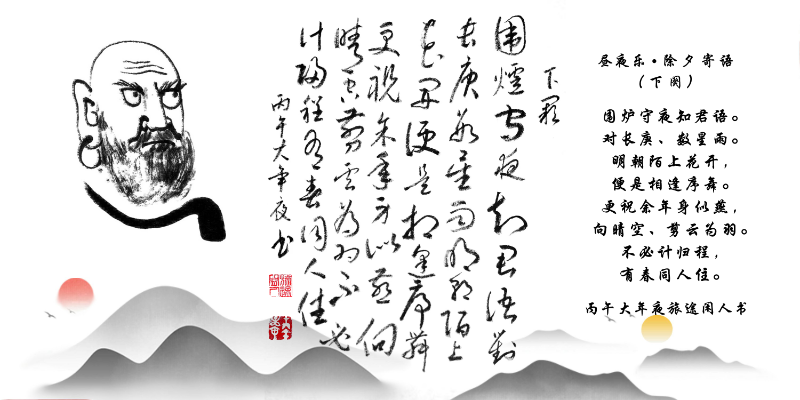 昼夜乐·除夕寄语
（下阕）
围炉守夜知君语。
对长庚、数星雨。
明朝陌上花开，
便是相逢序舞。
更祝余年身似燕，
向晴空、剪云为羽。
不必计归程，
有春同人住。
丙午大年夜旅途闲人书
下阕
围炉守夜知君语對
长庚数星雨明朝陌上
花开便是相逢序舞
更祝余年身似燕向
晴空剪云为羽不必
计归程有春同人住
丙午大年夜书